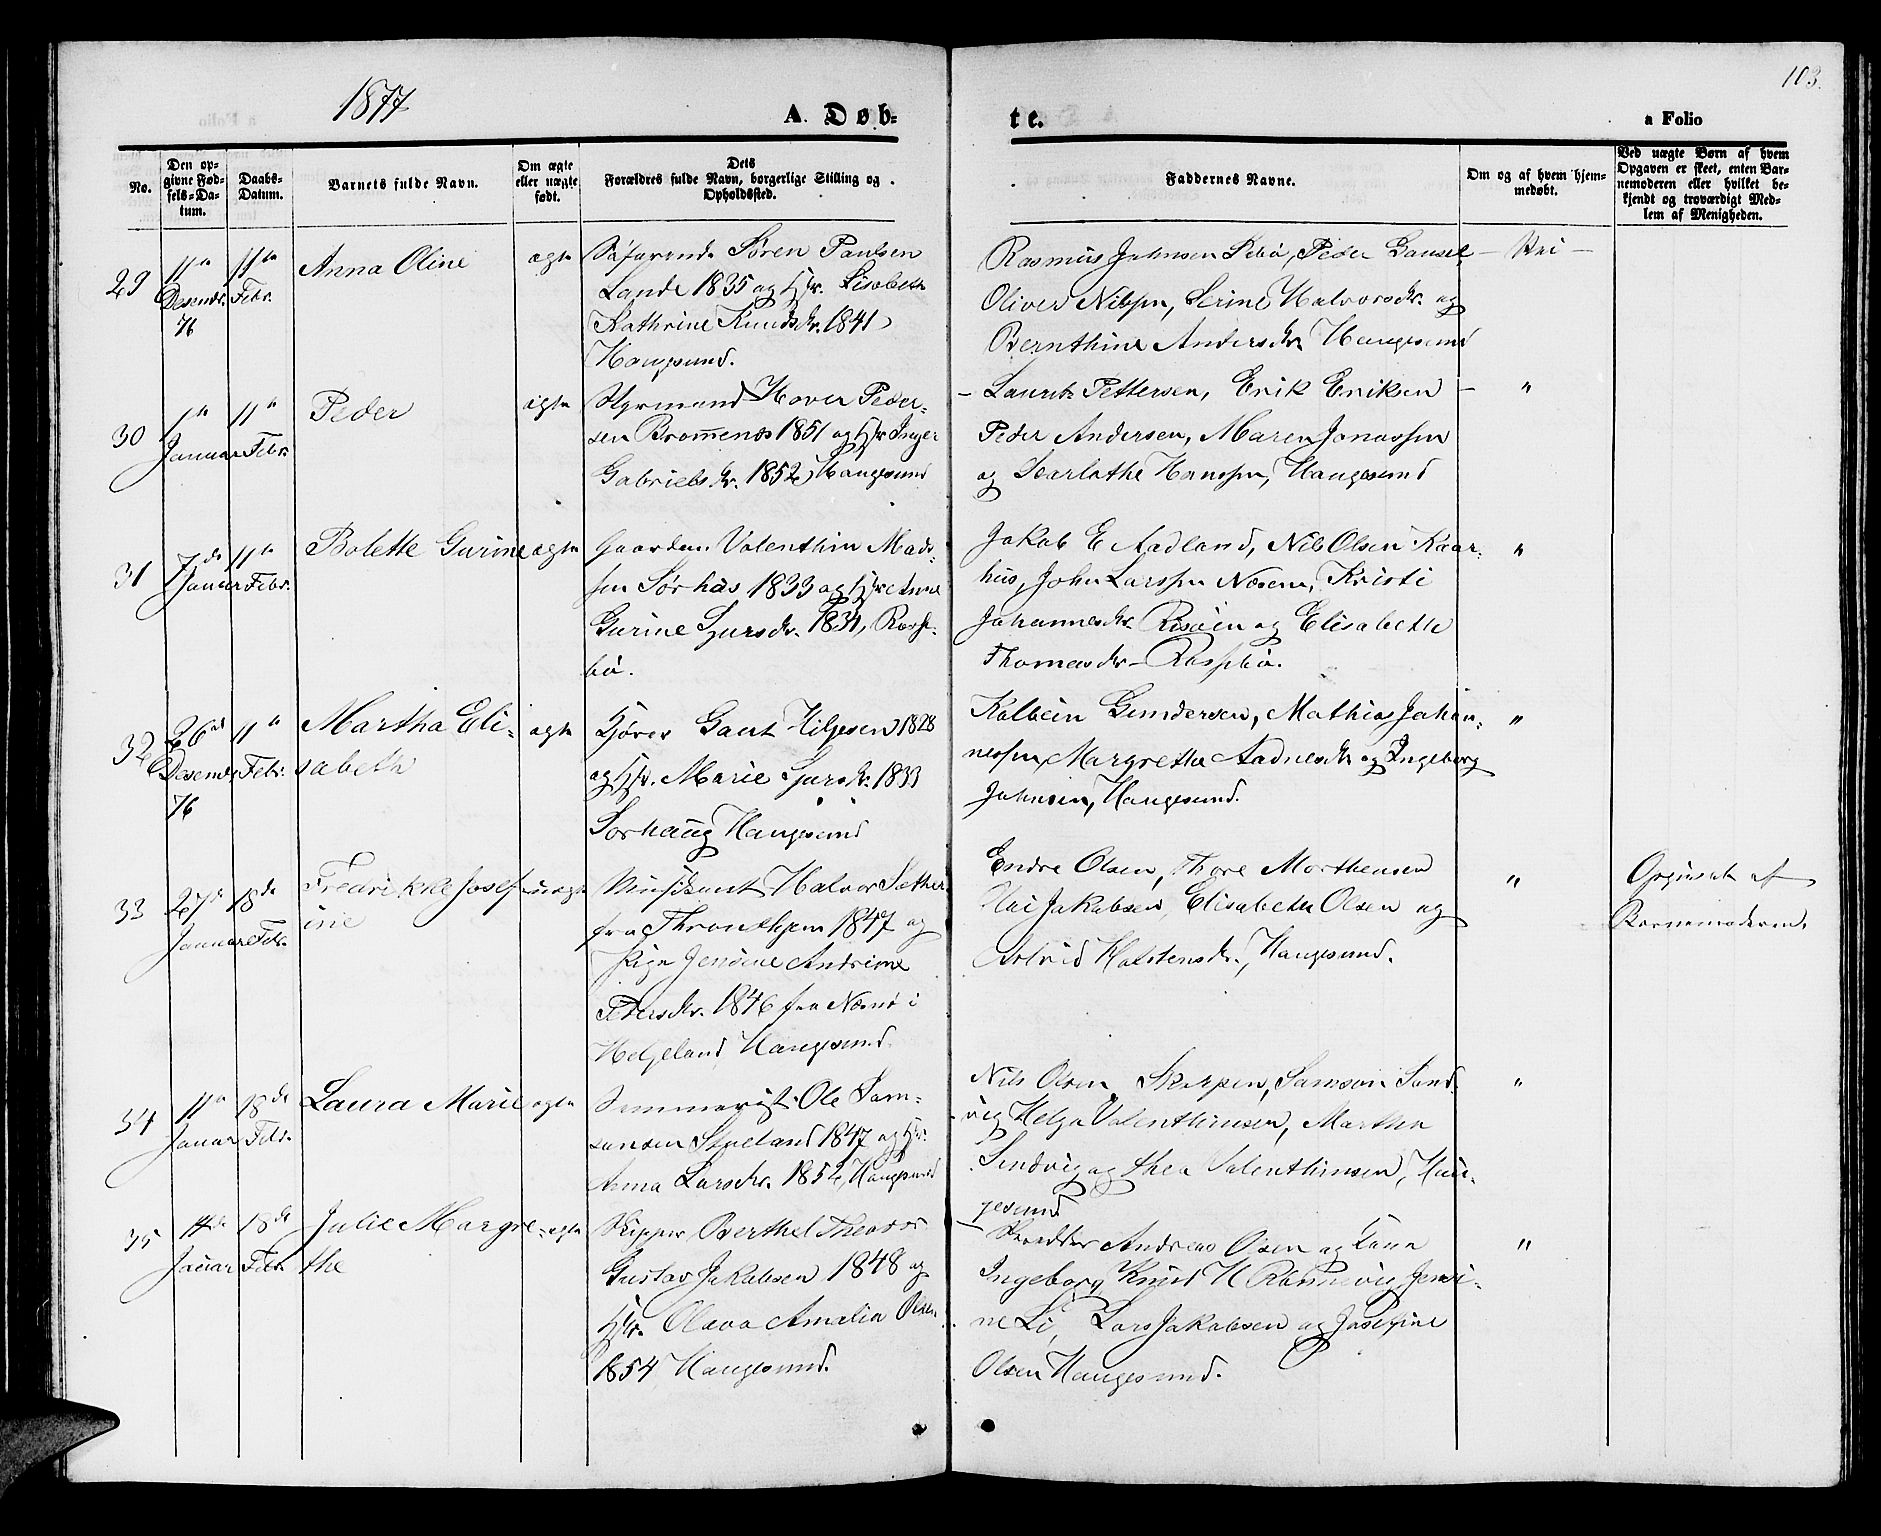 1877
A. Døb-
te.
103.
a Folio
No.
Den op-
givne Fød-
sels-Da-
tum.
Daabs-
Datum.
Barnets fulde Navn.
Om ægte
eller uægte
født.
Dets
Forældres fulde Navn, borgerlige Stilling og
Opholdssted.
Faddernes Navne.
Om og af hvem hjem-
medøbt.
Ved uægte Børn af hvem
Opgaven er skeet, enten Bar-
nemoderen eller hvilket be-
kjendt og troværdigt Med-
lem af Menigheden.
29
11te
Desembr.
76
11te
Febr.
Anna Oline
ægte
Søfarende Søren Paulsen
Lande 1835 og Hstr. Lisabeth
Kathrine Knudsdr. 1841
Haugesund.
Rasmus Johnsen Sebø, Peder
Oliver Nilsen, Serine Halvorsdr. og
Bernthine Andersdr. Haugesund
Nei
30
Januar
11te
Febr.
Peder
ægte
Styrmand Hover Peder-
sen Bromenes 1851 og Hstr Inger
Gabrielsdr. 1852, Haugesund
Laurits Pettersen, Erik Eriksen
Peder Andersen, Maren Jonassen
og Scarlothe Hanssen, Haugesund
"
31
7de
Januar
11te
Febr.
Bolette Gurine
ægte
Gaardm. Valenthin Mads-
sen Sørhus 1833 og Hstr Anne
Gurine Sjursdr. 1831, Rosse-
bø.
Jakob E Aadland, Nils Olsen Kaar-
hus, John Larssen Næsene, Kristi
Johannesdr. Risøen og Elisabeth
Thomasdr Rossebø.
"
32
26de
Desembr
76
11te
Febr.
Martha Eli-
sabeth
ægte
Kjører Gaut Hiljesen 1828
og Hstr. Marie Sjursdr. 1833
Sørhaug Haugesund
Kolbein Gundersen, Mathias Johan-
nessen, Margrethe Aadnesdr og Ingeborg
Johnsen, Haugesund.
"
33
27de
Januar
18de
Febr.
Fredrikke Josef-
ine
uægte
Musikant Halvor Sæther
fra Throndhjem 1847 og
Pige Jensine Andrine
Pedersdr. 1846 fra Næsnø i
Helgeland Haugesund.
Endre Olsen, Thore Morthensen
Jakobsen, Elisabeth Olsen og
Astrid Halstensdr., Haugesund.
"
Opgivet af
Barnemoderen.
34
11te
Januar
18de
Febr.
Laura Marie
ægte
Ole Sam-
sonsen Stueland 1847 og Hstr.
Anna Larsdr. 1852, Haugesund
Nils Olsen Skeppen, Samson Sand-
vig, Helga Valenthinsen, Martha
Sandvig og Thea Valenthinsen, Hau-
gesund
"
35
14de
Januar
18de
Febr.
Julie Margre-
the
ægte
Skipper Berthel Theodor
Gustav Jakobsen 1848 og
Hstr. Olava Amalia Olsen
1854 Haugesund.
Skrædder Andreas Olsen og Kone
Ingeborg, Knud H Rønnevig, Jensi-
ne Li, Lars Jakobsen og Josefine
Olsen Haugesund.
"